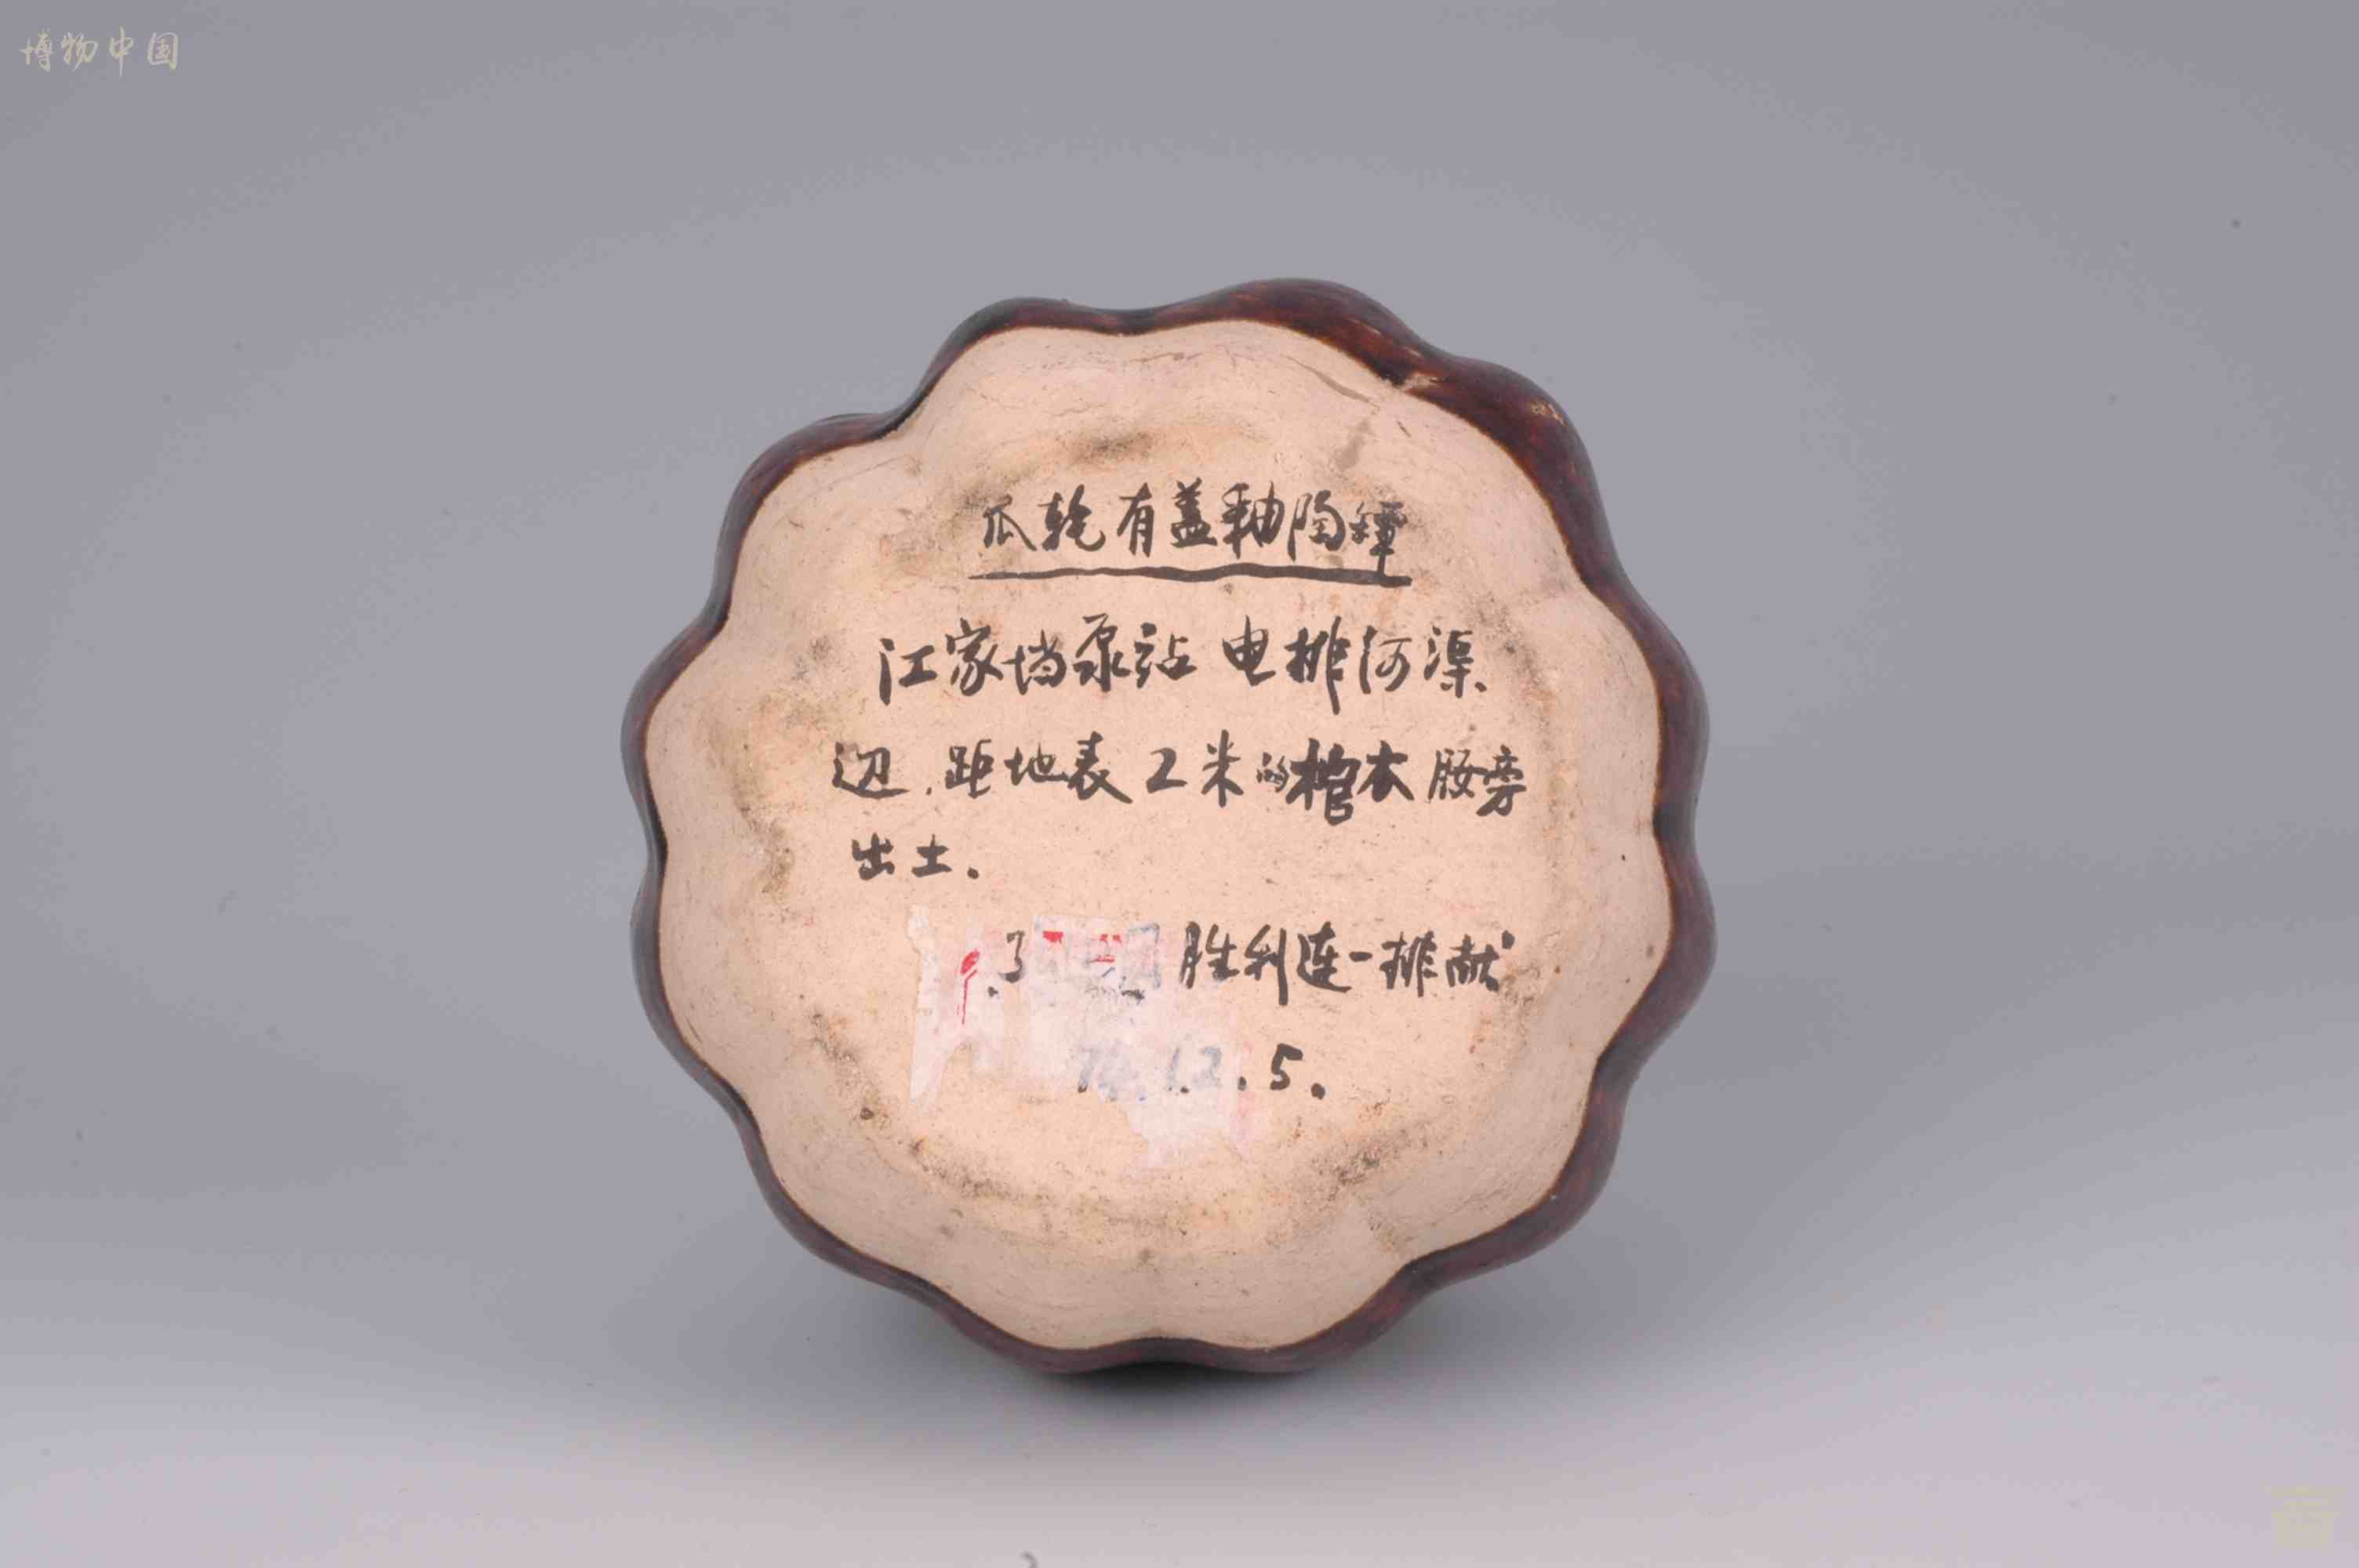 博物中国
瓜乾有盖釉陶罈
江家垱泵站 电排河渠
辺.距地表2米的棺木腰旁
出土.
3 胜利连一排献
74.12.5.